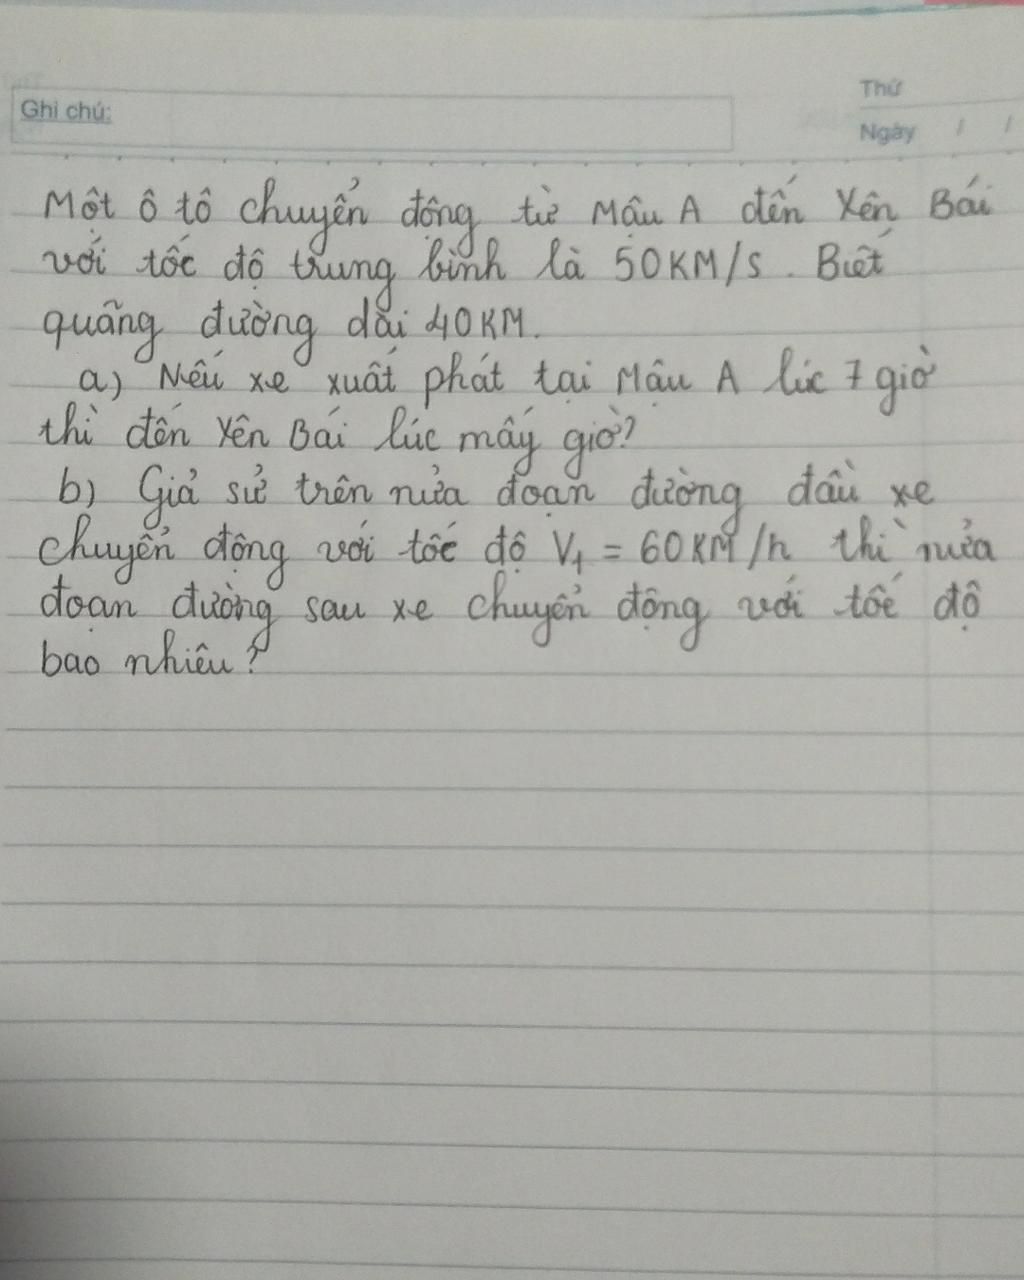 Ghi chú:
Thứ
Ngày / /
Một ô tô chuyển động từ Mậu A đến Yên Bái
với tốc độ trung bình là 50KM/s. Biết
quãng đường dài 40KM.
a) Nếu xe xuất phát tại Mậu A lúc 7 giờ
thì đến Yên Bái lúc mấy giờ?
b) Giả sử trên nửa đoạn đường đầu xe
chuyển động với tốc độ V1 = 60KM/h thì nửa
đoạn đường sau xe chuyển động với tốc độ
bao nhiêu?